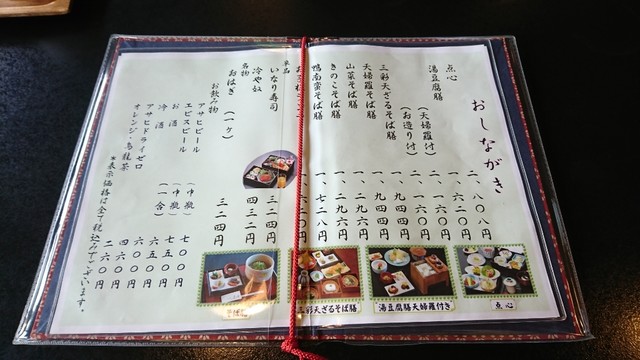 おしながき
点心 二、八〇八円
湯豆腐膳 一、六二〇円
(天婦羅付) 二、一六〇円
(お造り付) 二、一六〇円
三彩天ざるそば膳 一、九四四円
天婦羅そば膳 一、九四四円
山菜そば膳 一、二九六円
きのこそば膳 一、二九六円
鴨南蛮そば膳 一、七二八円
六二〇円
単品
いなり寿司 三二四円
冷や奴 四三二円
名物
おはぎ (一ヶ) 三二四円
お飲み物
アサヒビール (中瓶) 七〇〇円
エビスビール (中瓶) 七五〇円
お酒 (一合) 六五〇円
冷酒 六〇〇円
アサヒドライゼロ 四六〇円
オレンジ・烏龍茶 二六〇円
※表示価格は全て税込みでございます。
点心
湯豆腐膳天婦羅付き
三彩天ざるそば膳